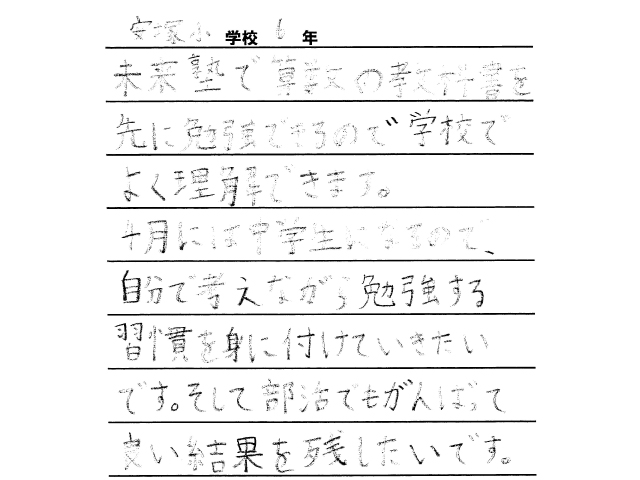 安塚小学校 6年
未来塾で算数の教科書を
先に勉強できるので学校で
よく理解できます。
4月には中学生になるので、
自分で考えながら勉強する
習慣を身に付けていきたい
です。そして部活でもがんばって
良い結果を残したいです。